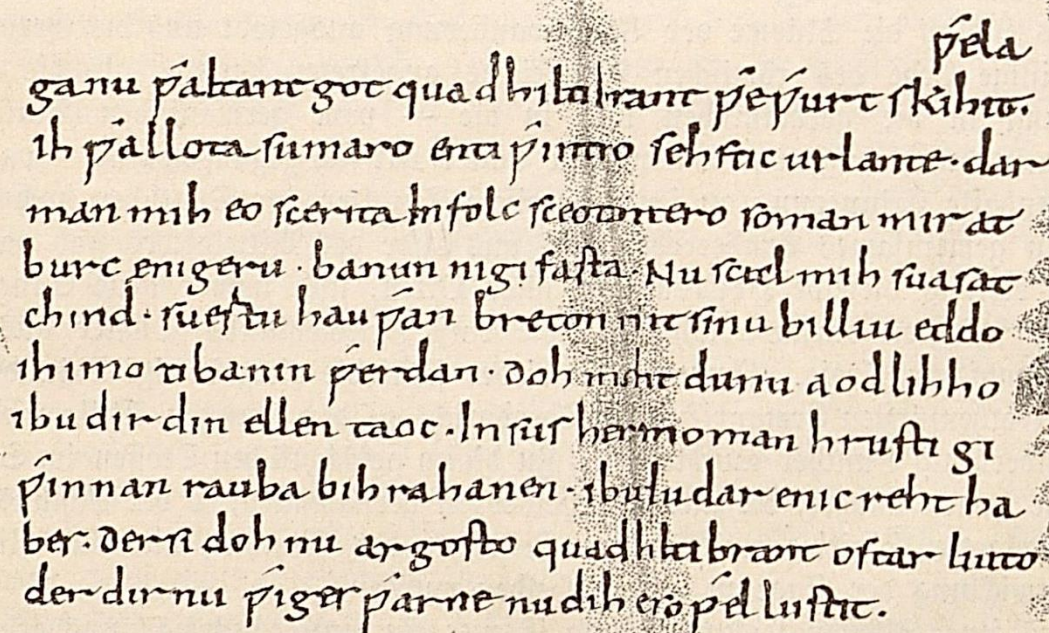 ƿ́ela
ganu ƿ́altant got quad hiltibrant ƿ́eƿ́urt skihit.
ih ƿ́allota sumaro enti ƿ́intro sehstic ur lante · dar
man mih eo scerita In folc sceotantero so man mir at
burc enigeru · banun ni gifasta · Nu scal mih suasat
chind · suertu hauƿ́an breton mit sinu billiu eddo
ih imo ti banin ƿ́erdan · doh maht du nu aodlihho
ibu dir din ellen taoc · In sus heremo man hrusti gi
ƿ́innan rauba bihrahanen · ibu du dar enic reht ha
bes · der si doh nu argosto quad hiltibrant ostar liuto
der dir nu ƿ́iges ƿ́arne nu dih es so ƿ́el lustit.